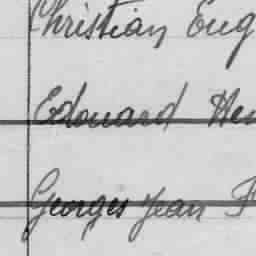 Christian Eug
Edouard Hen
Georges Jean F